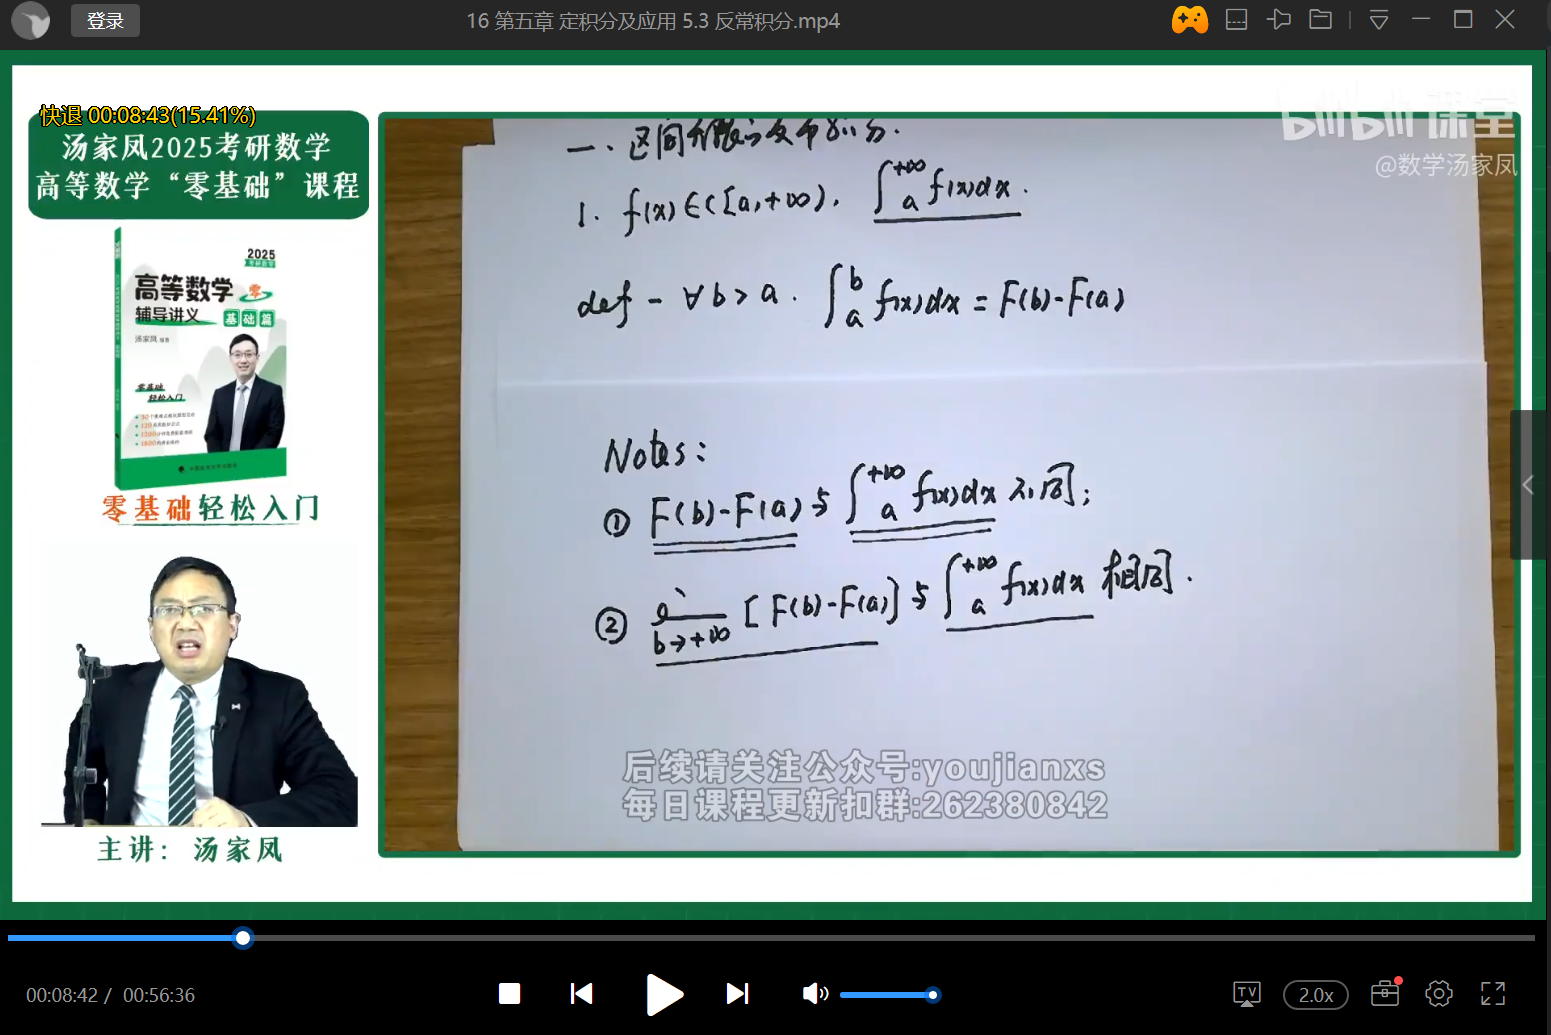 登录
16 第五章 定积分及应用 5.3 反常积分.mp4
快退 00:08:43(15.41%)
汤家凤2025考研数学
高等数学“零基础”课程
2025
高等数学 零
辅导讲义 基础篇
汤家凤
零基础
轻松入门
零基础轻松入门
主讲：汤家凤
bilibili课堂
@数学汤家凤
一、区间无限的反常积分.
1. f(x)∈C[a,+∞), ∫_a^{+∞} f(x)dx.
def - ∀b>a. ∫_a^b f(x)dx = F(b)-F(a)
Notes:
① F(b)-F(a) 与 ∫_a^{+∞} f(x)dx 不同;
② lim_{b→+∞} [F(b)-F(a)] 与 ∫_a^{+∞} f(x)dx 相同.
后续请关注公众号:youjianxs
每日课程更新扣群:262380842
00:08:42 / 00:56:36
TV
2.0x